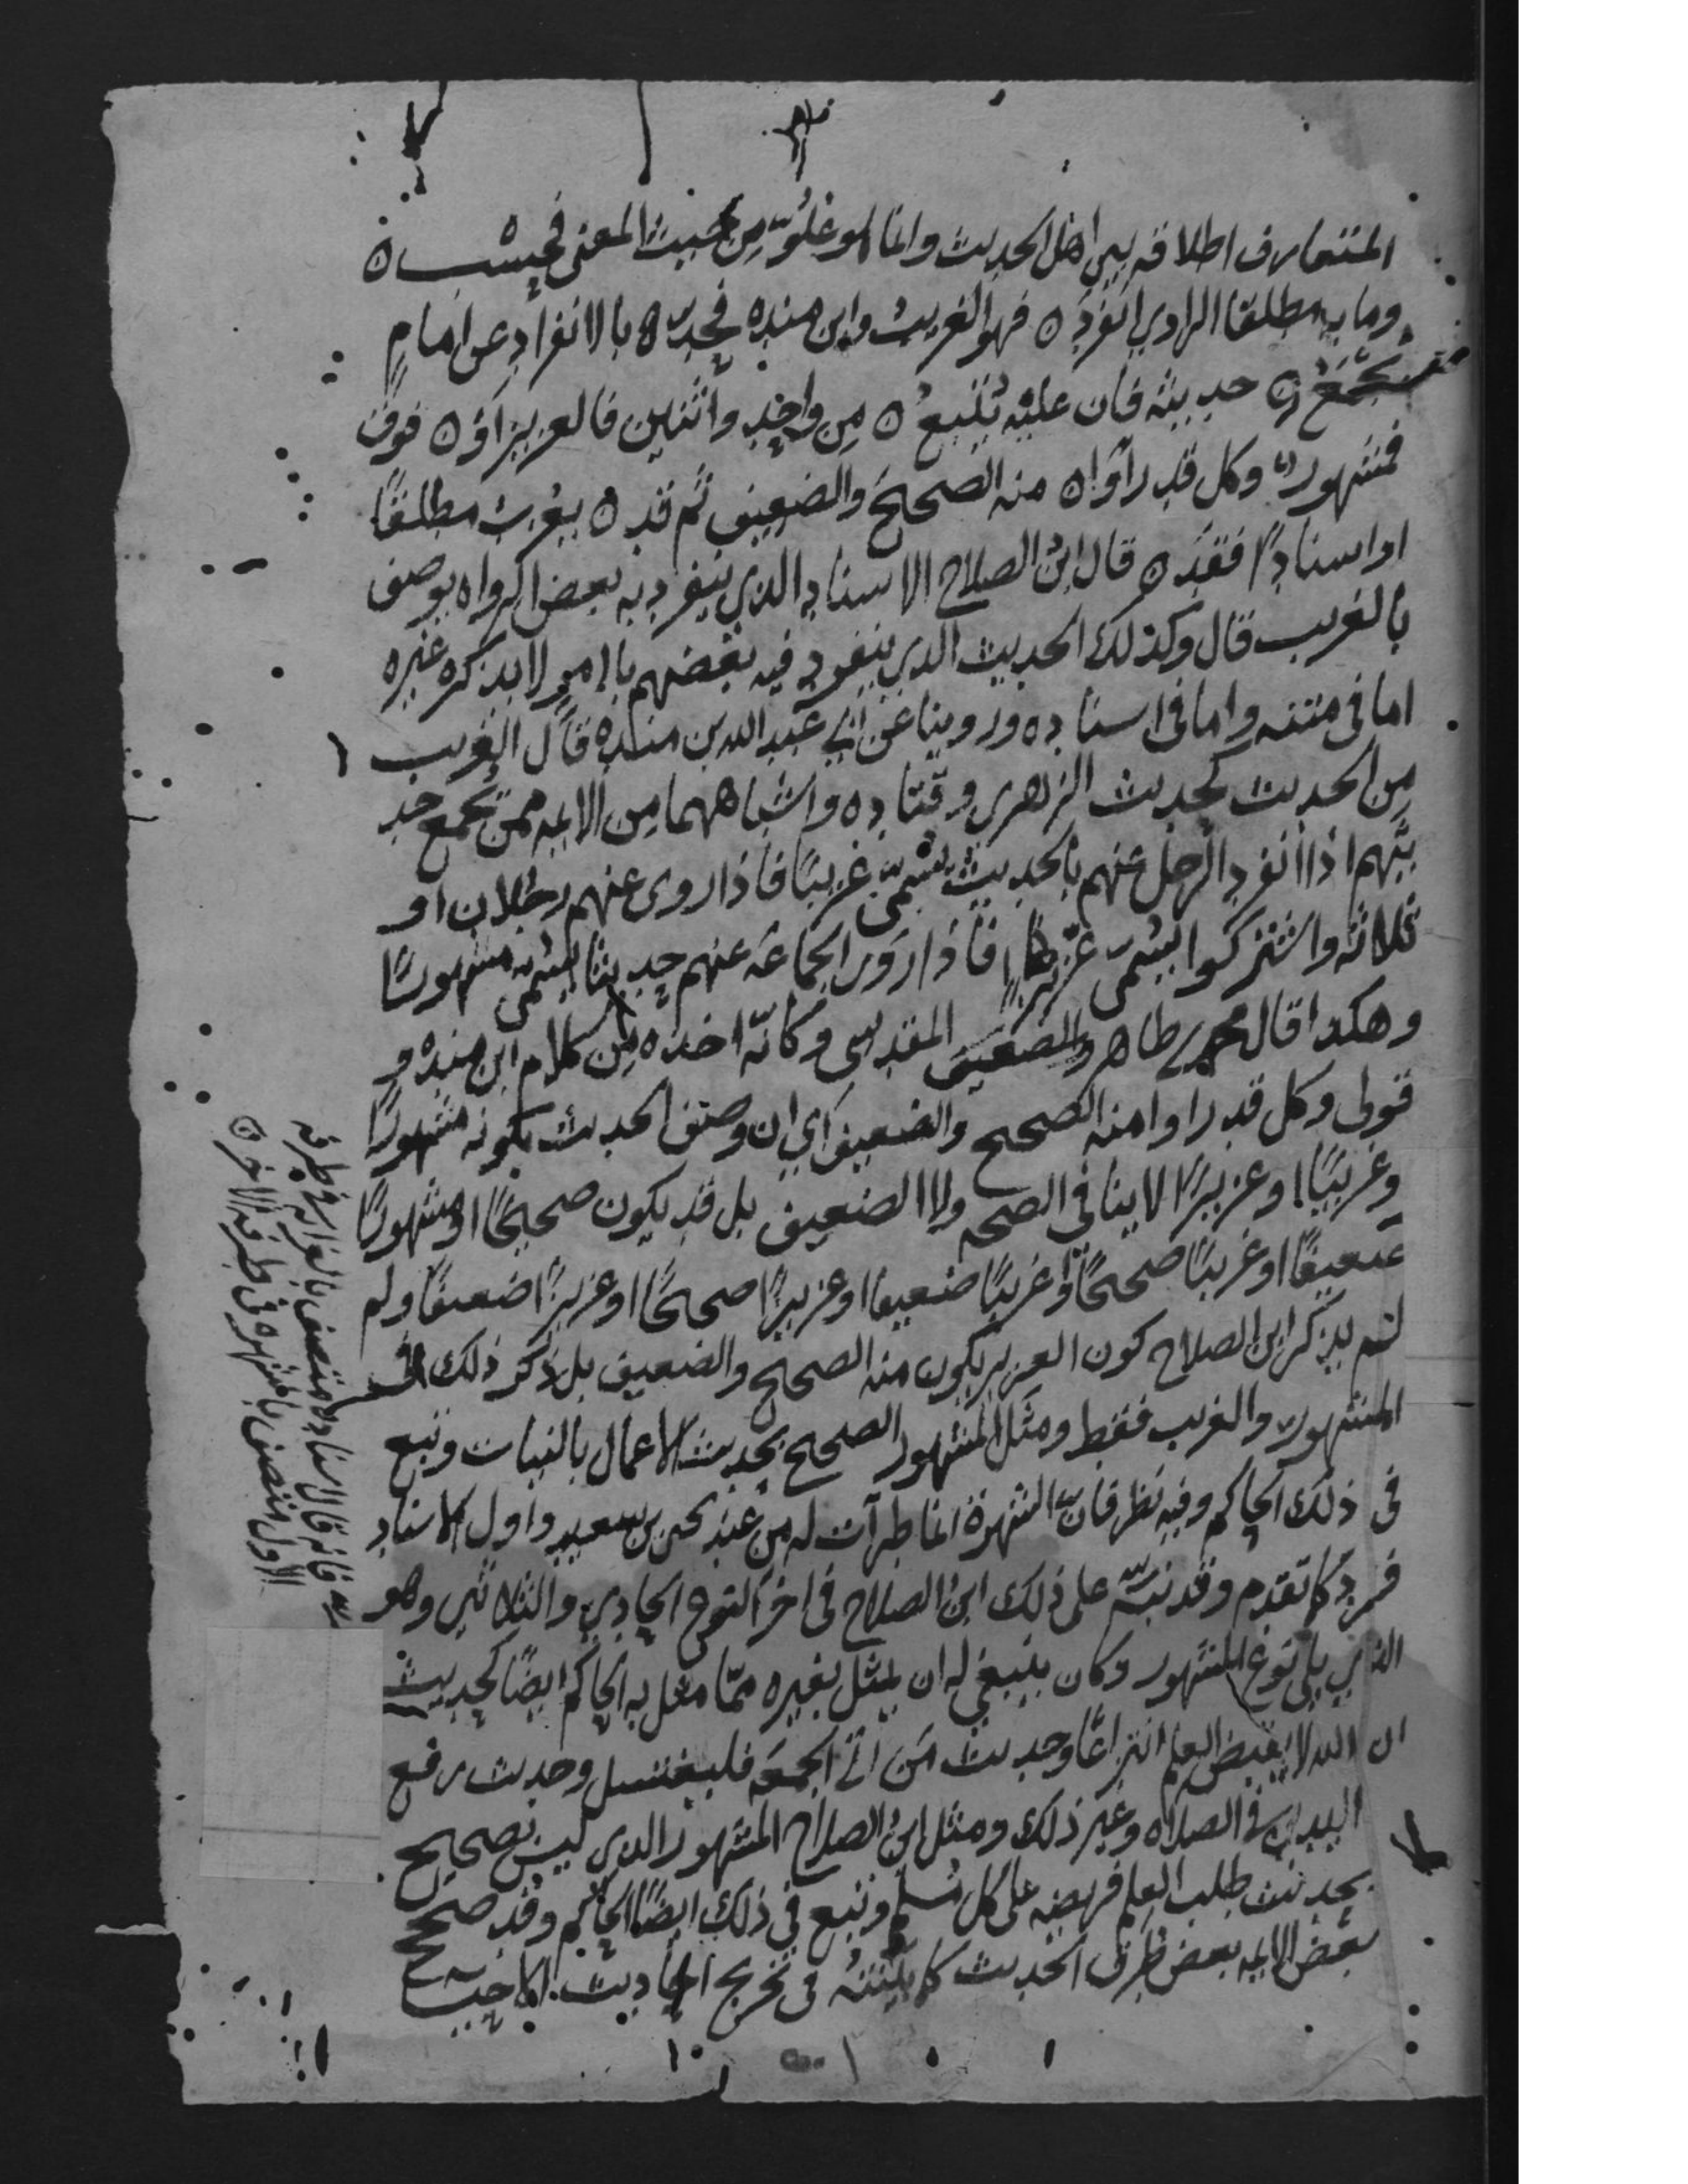 المتعارف اطلاقه بين اهل الحديث وانما هو علوّ من حيث المعنى فحسب ه
وما به مطلقا الراوي انفرد ه فهو الغريب وابن منده فحد ه بالانفراد عن امام
يجمع ه حديثه فان عليه يتبع ه من واحد واثنين فالعزيز او ه فوق
فمشهور وكل قد راوا ه منه الصحيح والضعيف ثم قد ه يغرب مطلقا
او اسنادا فقد ه قال ابن الصلاح الاسناد الذي ينفرد به بعض الرواه يوصف
بالغريب قال وكذلك الحديث الذي ينفرد فيه بعضهم بامر لا يذكره غيره
اما في متنه واما في اسناده وروينا عن ابي عبد الله بن منده قال الغريب
من الحديث كحديث الزهري وقتاده واشباههما من الايمه ممن يجمع حد
يثهم اذا انفرد الرجل عنهم بالحديث يسمى غريبا فاذا روى عنهم رجلان او
ثلاثه واشتركوا يسمى عزيزا فاذا روى الجماعه عنهم حديثا يسمى مشهورا
وهكذا قال محمد بن طاهر والضعيف المقدسي وكانه اخذه من كلام ابن منده و
قولي وكل قد راوا منه الصحيح والضعيف اي ان وصف الحديث بكونه مشهورا
وغريبا او عزيزا لا ينافي الصحه ولا الضعيف بل قد يكون صحيحا او مشهورا
ضعيفا او غريبا صحيحا او غريبا ضعيفا او عزيزا صحيحا او عزيزا ضعيفا ولم
لم يذكر ابن الصلاح كون العزيز يكون منه الصحيح والضعيف بل ذكر ذلك في
المشهور والغريب فقط ومثل المشهور الصحيح بحديث الاعمال بالنيات وتبع
في ذلك الحاكم وفيه نظر فان الشهرة انما طرأت له من عند يحيى بن سعيد واول الاسناد
فرد كما تقدم وقد نبه على ذلك ابن الصلاح في اخر النوع الحادي والثلاثين وهو
الذي يلي نوع المشهور وكان ينبغي له ان يمثل بغيره مما مثل به الحاكم ايضا كحديث
ان الله لا يقبض العلم انتزاعا وحديث من اتى الجمعه فليغتسل وحديث رفع
اليدين في الصلاه وغير ذلك ومثل ابن الصلاح المشهور الذي ليس بصحيح
بحديث طلب العلم فريضه على كل مسلم وتبع في ذلك ايضا الحاكم وقد صحح
بعض الايمه بعض طرق الحديث كما بينته في تخريج احاديث الاحيا
فانه قال الاسناد متصف بالغرابه في طرفه
الاول متصف بالشهره في طرفه الاخر ه